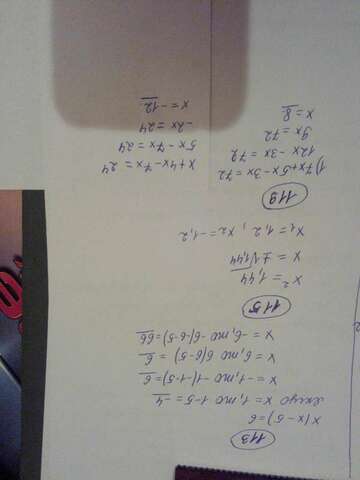 113
x(x-5)=6
якщо x=1, то 1-5=-4
x=-1, то -1(-1-5)=6
x=6, то 6(6-5)=6
x=-6, то -6(-6-5)=66
115
x²=1,44
x=±√1,44
x₁=1,2, x₂=-1,2
119
1) 7x+5x-3x=72
12x-3x=72
9x=72
x=8
x+4x-7x=24
5x-7x=24
-2x=24
x=-12